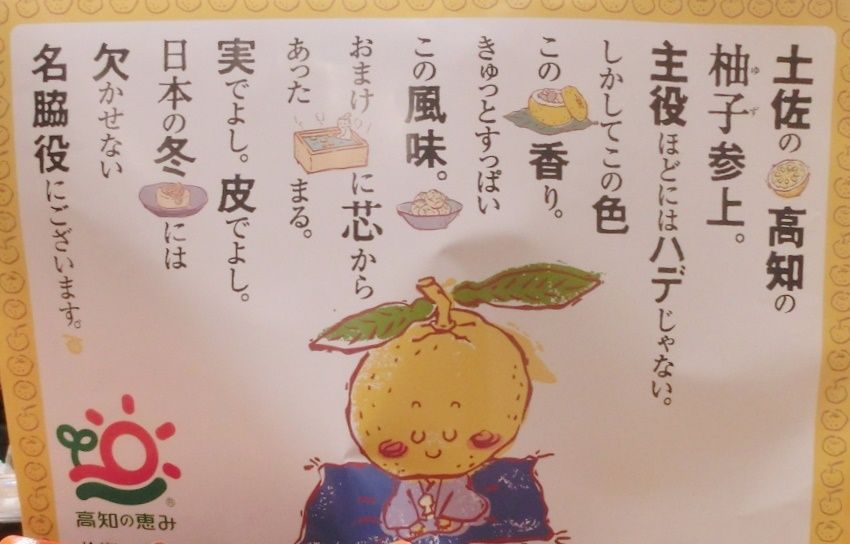 土佐の高知の
柚子参上。
ゆず
主役ほどにはハデじゃない。
しかしてこの色
この香り。
きゅっとすっぱい
この風味。
おまけに芯から
あったまる。
実でよし。皮でよし。
日本の冬には
欠かせない
名脇役にございます。
高知の恵み
®